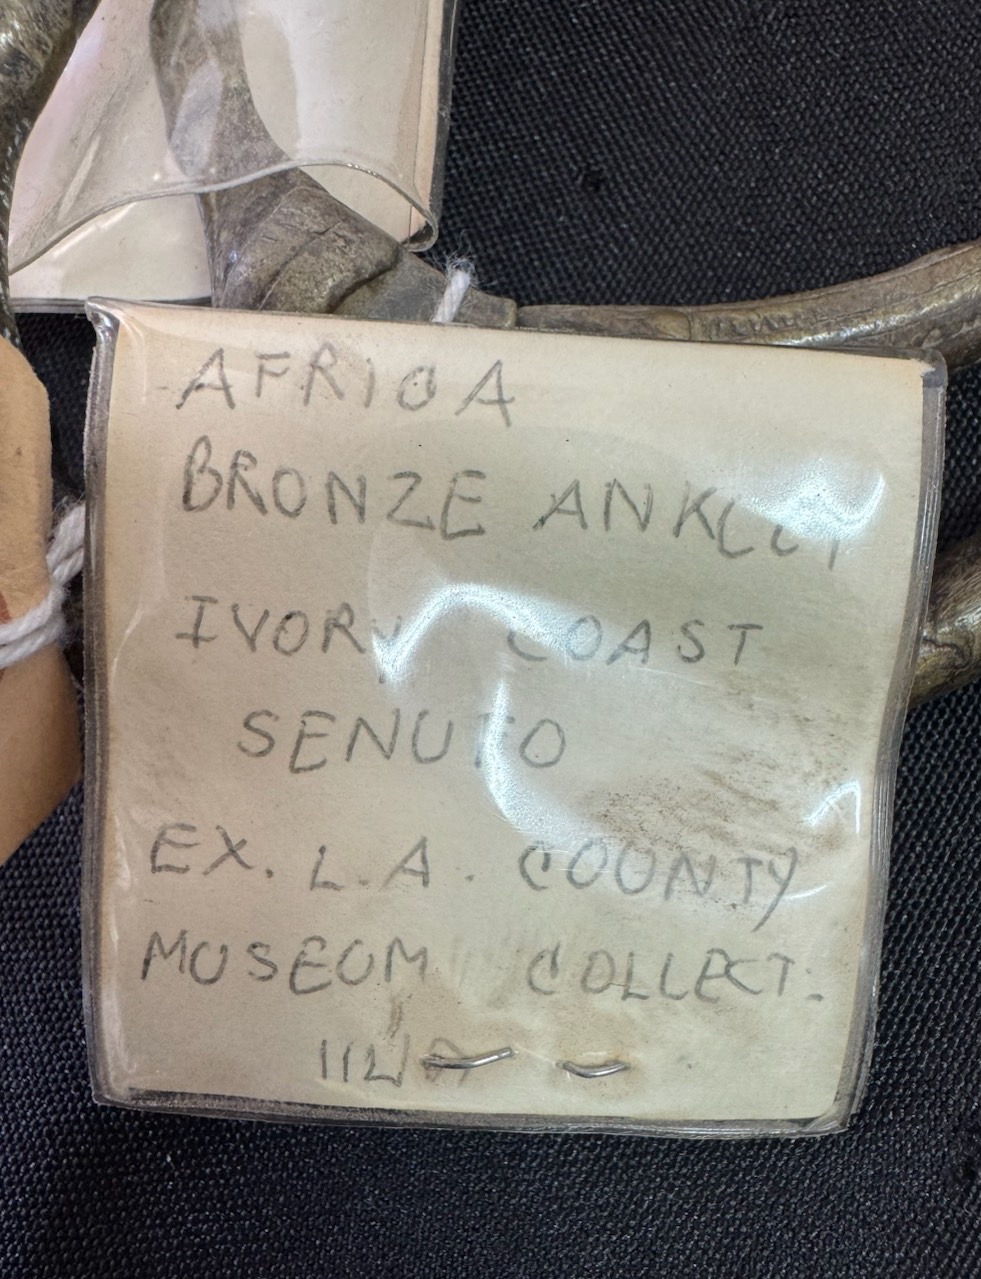 AFRICA
BRONZE ANKLET
IVORY COAST
SENUFO
EX. L.A. COUNTY
MUSEUM COLLECT.